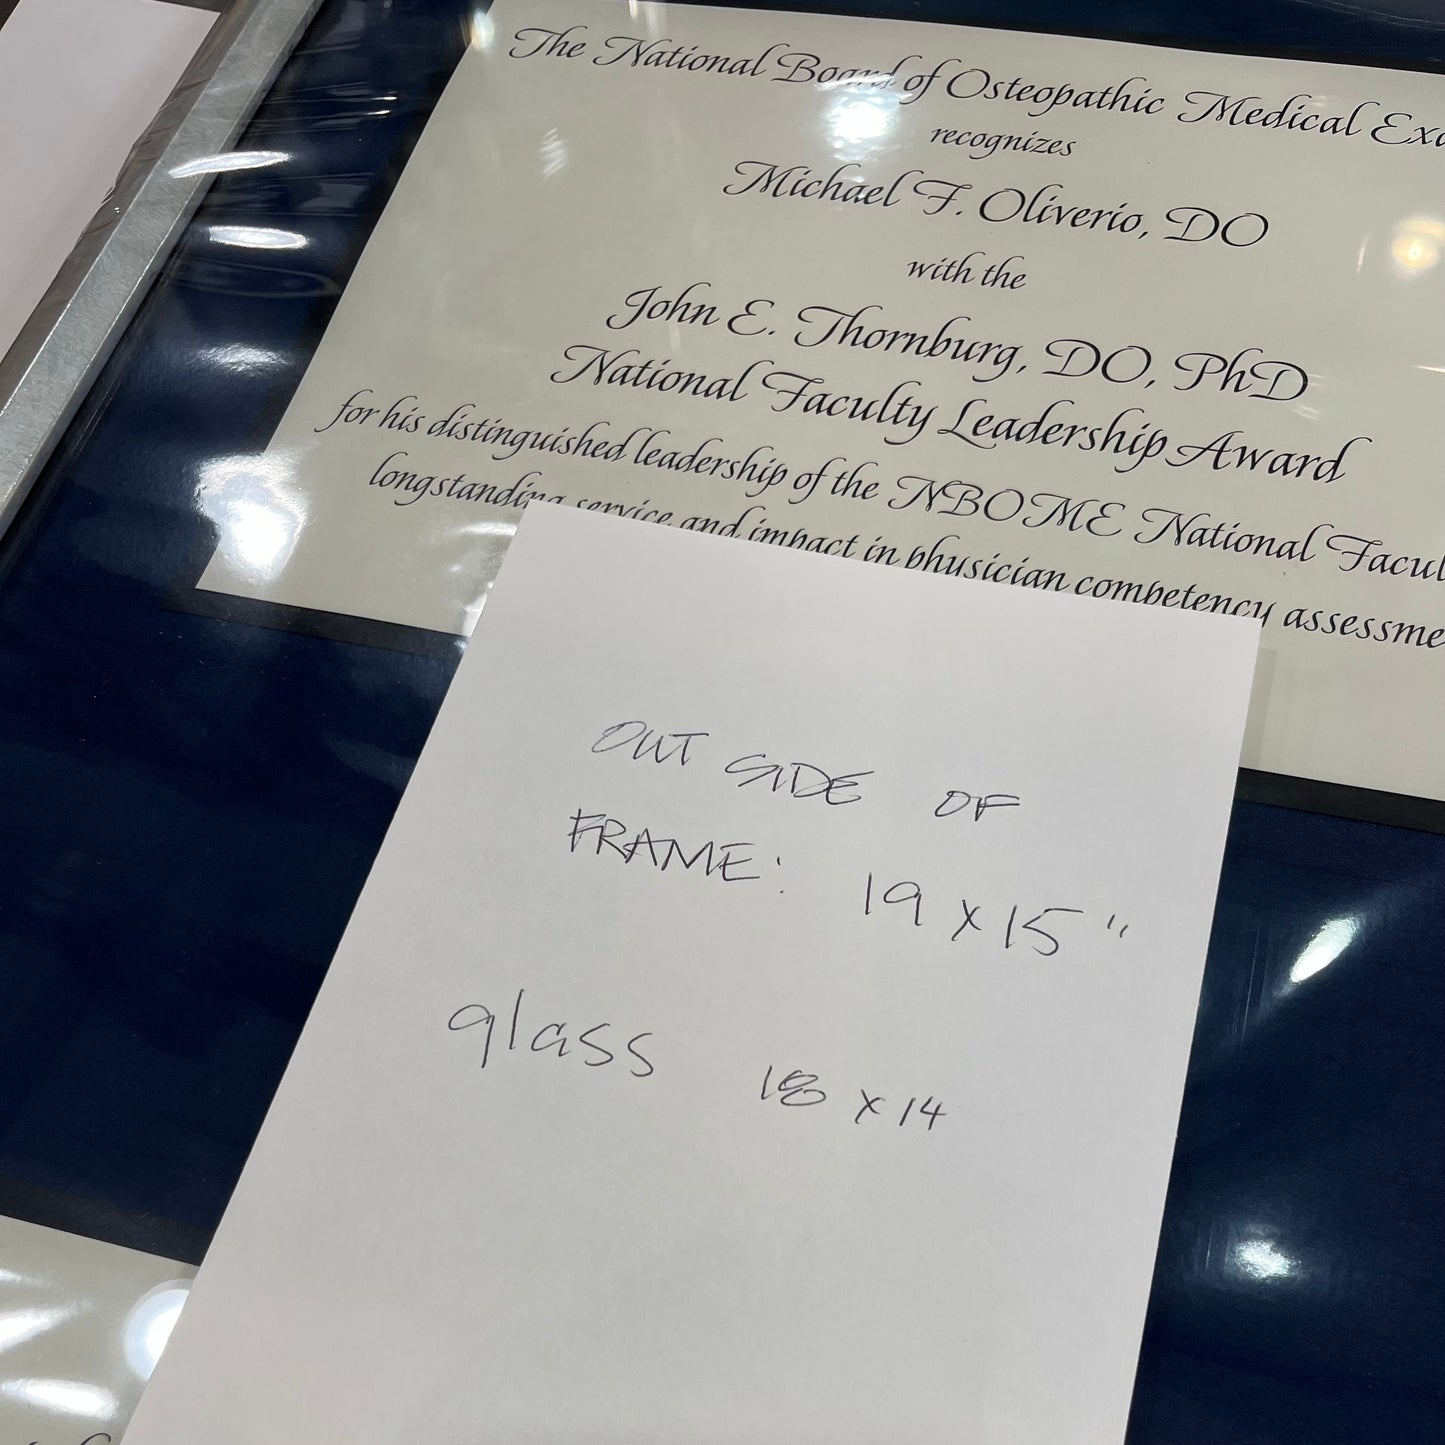 The National Board of Osteopathic Medical Exa
recognizes
Michael F. Oliverio, DO
with the
John E. Thornburg, DO, PhD
National Faculty Leadership Award
for his distinguished leadership of the NBOME National Facul
longstanding service and impact in physician competency assessme
OUTSIDE OF
FRAME: 19 x 15"
glass 18 x 14